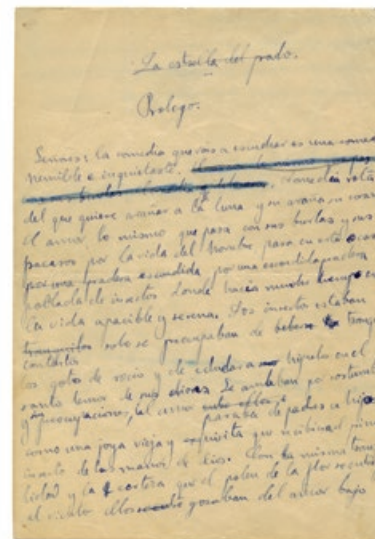 La estrella del prado.
Prologo.
Señores: la comedia que vais a escuchar es una comed
humilde e inquietante.
Comedia rota
del que quiere arañar a la luna y se araña su coraz
El amor, lo mismo que pasa con sus burlas y sus
fracasos por la vida del hombre pasa en esta ocas
por una pradera escondida
poblada de insectos donde hacia mucho tiempo era
la vida apacible y serena. Los insectos estaban
contentos solo se preocupaban de beber tranqu
las gotas de rocio y de educar a sus hijuelos en el
santo temor de sus dioses. Se amaban por costumbre
y preocupaciones, el amor pasaba de padres a hijos
como una joya vieja y exquisita que recibiera el prim
insecto de las manos de Dios. Con la misma tranq
lidad y la certeza que el polen de la flor se entreg
al viento ellos gozaban del amor bajo